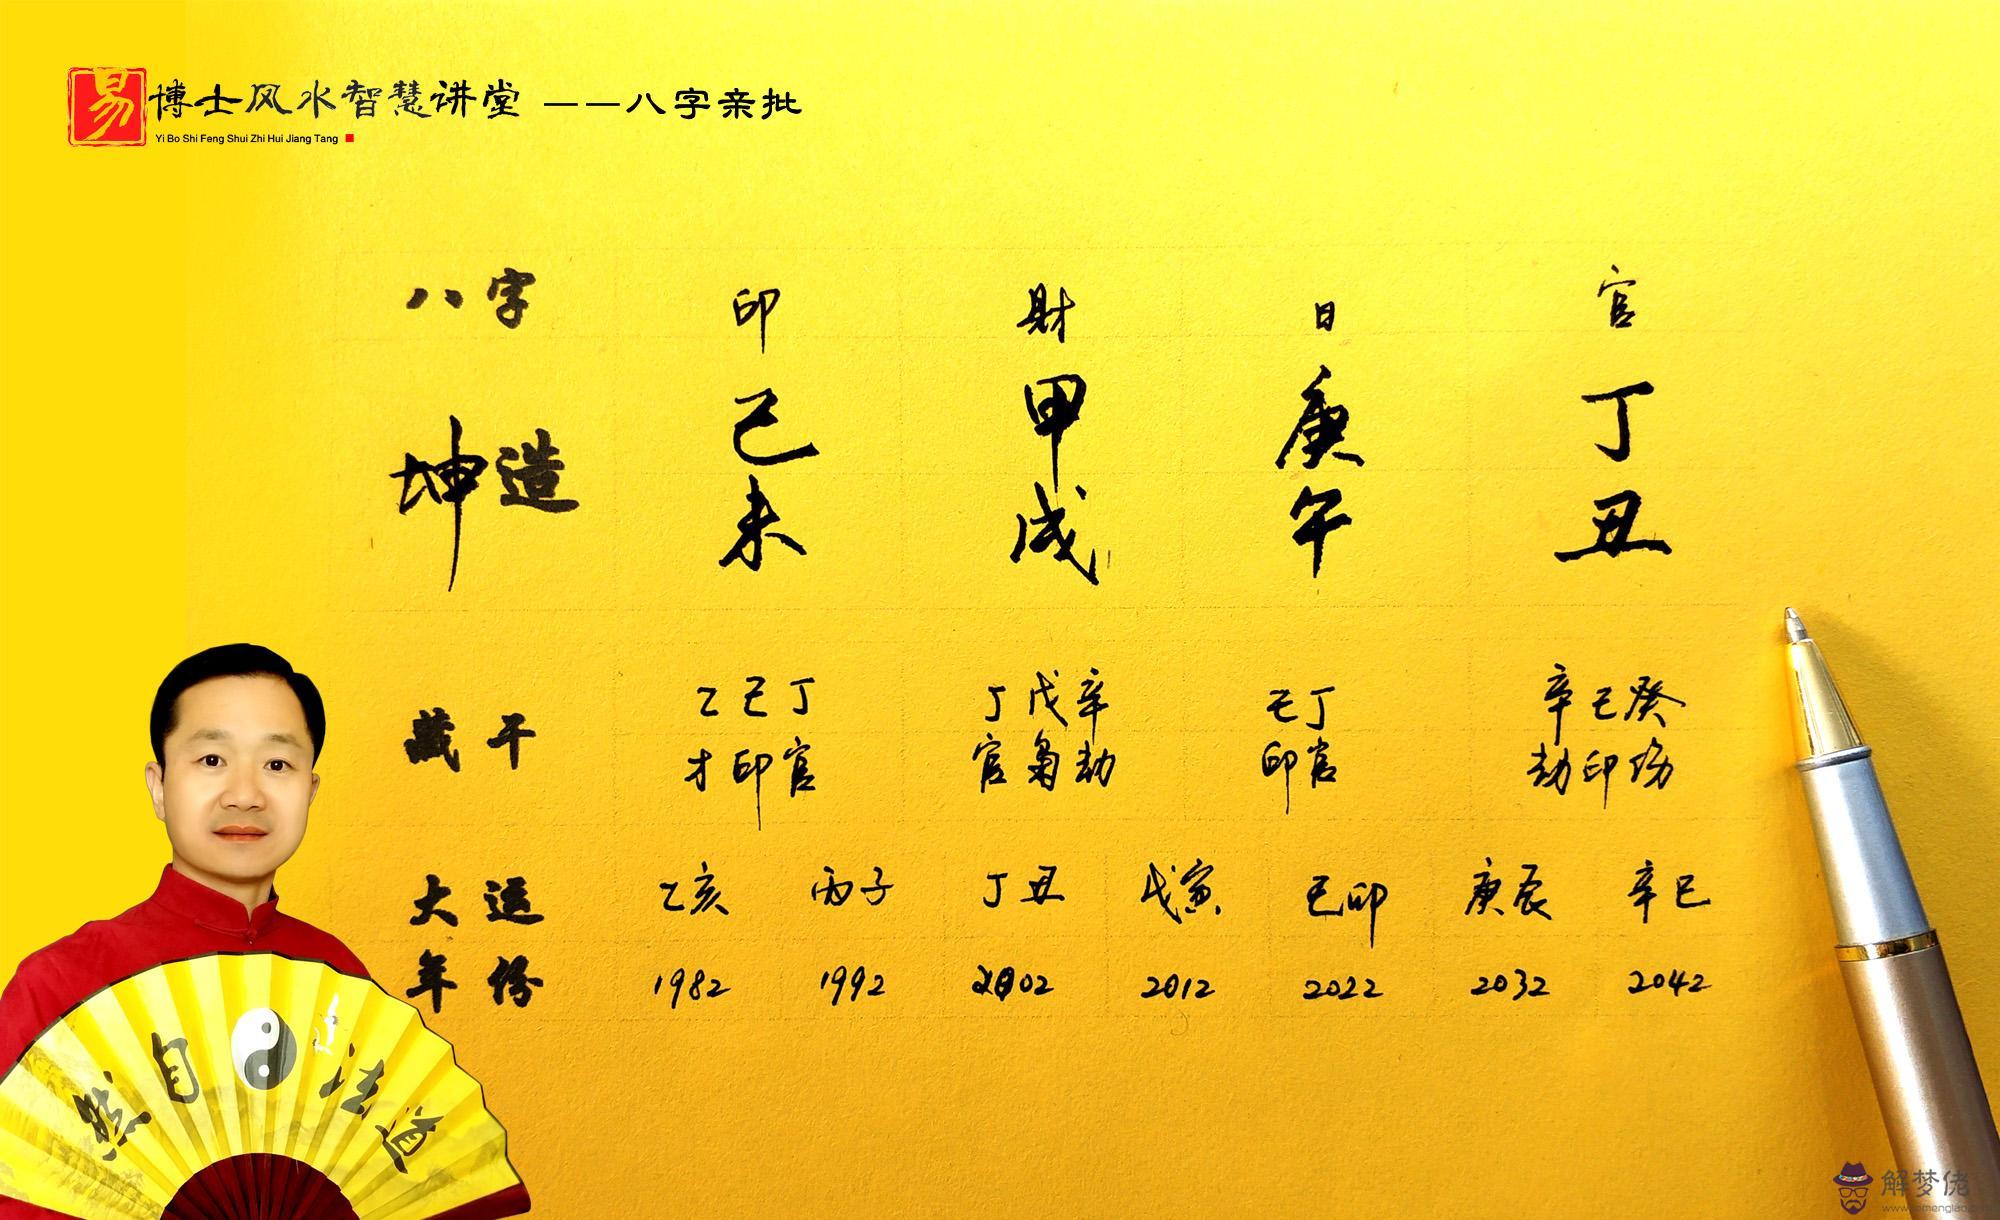 易博士风水智慧讲堂 ——八字亲批
Yi Bo Shi Feng Shui Zhi Hui Jiang Tang
八字 印 财 日 官
坤造 己 甲 庚 丁
未 戌 午 丑
藏干 乙己丁 丁戊辛 己丁 辛己癸
才印官 官枭劫 印官 劫印伤
大运 乙亥 丙子 丁丑 戊寅 己卯 庚辰 辛巳
年份 1982 1992 2002 2012 2022 2032 2042
然自法道
解梦佬